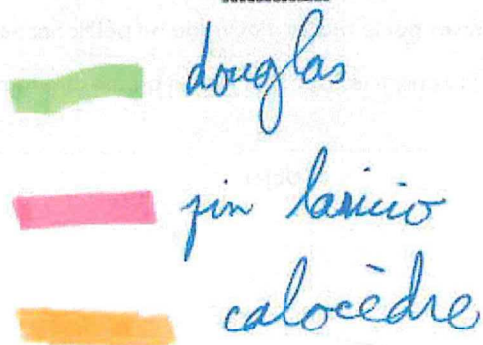 douglas
pin laricio
calocèdre